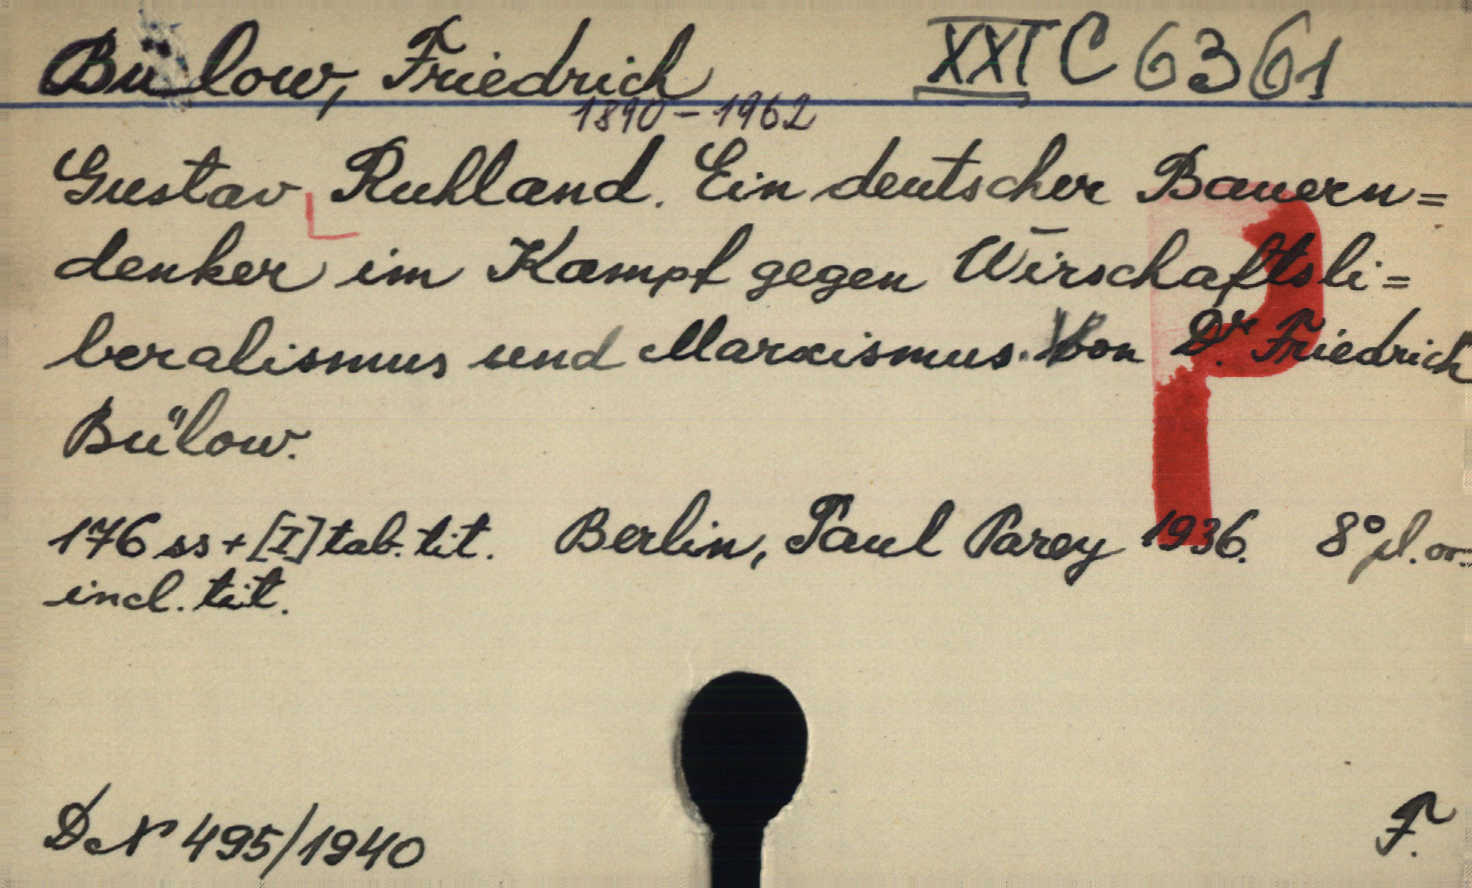 Bülow, Friedrich XXI C 6361
1890-1962
Gustav Ruhland. Ein deutscher Bauern=
denker im Kampf gegen Wirschaftsli=
beralismus und Marxismus. Von Dr. Friedrich
Bülow.
176 ss + [I] tab. tit. Berlin, Paul Parey 1936. 8° pl. or.
incl. tit.
P
DN 495/1940 F.